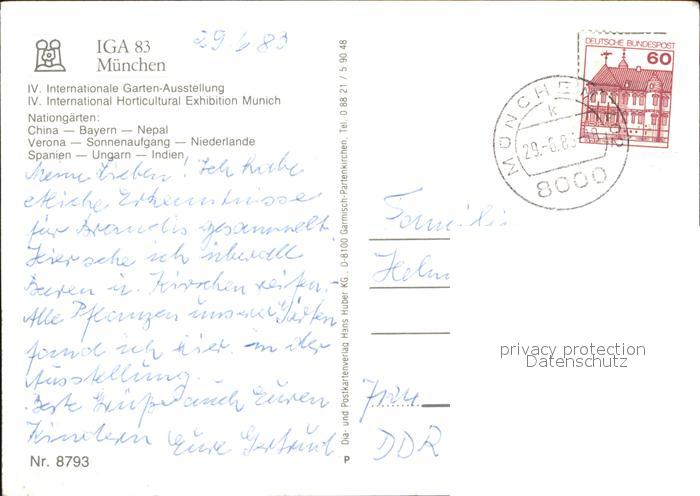 IGA 83
München
29 6 83
IV. Internationale Garten-Ausstellung
IV. International Horticultural Exhibition Munich
Nationgärten:
China — Bayern — Nepal
Verona — Sonnenaufgang — Niederlande
Spanien — Ungarn — Indien
Meine Lieben! Ich habe
etliche Erkenntnisse
für Brandis gesammelt
Hier sehe ich überall
Beeren u. Kirschen reifen.
Alle Pflanzen unserer Gärten
fand ich hier in der
Ausstellung.
Beste Grüße auch Euren
Kindern Eure Gertrud
Nr. 8793
P
Dia- und Postkartenverlag Hans Huber KG., D-8100 Garmisch-Partenkirchen, Tel. 0 88 21 / 5 90 48
DEUTSCHE BUNDESPOST
60
MÜNCHEN
k
29.-6.83-18
8000
Familie
Helm
DDR
privacy protection
Datenschutz